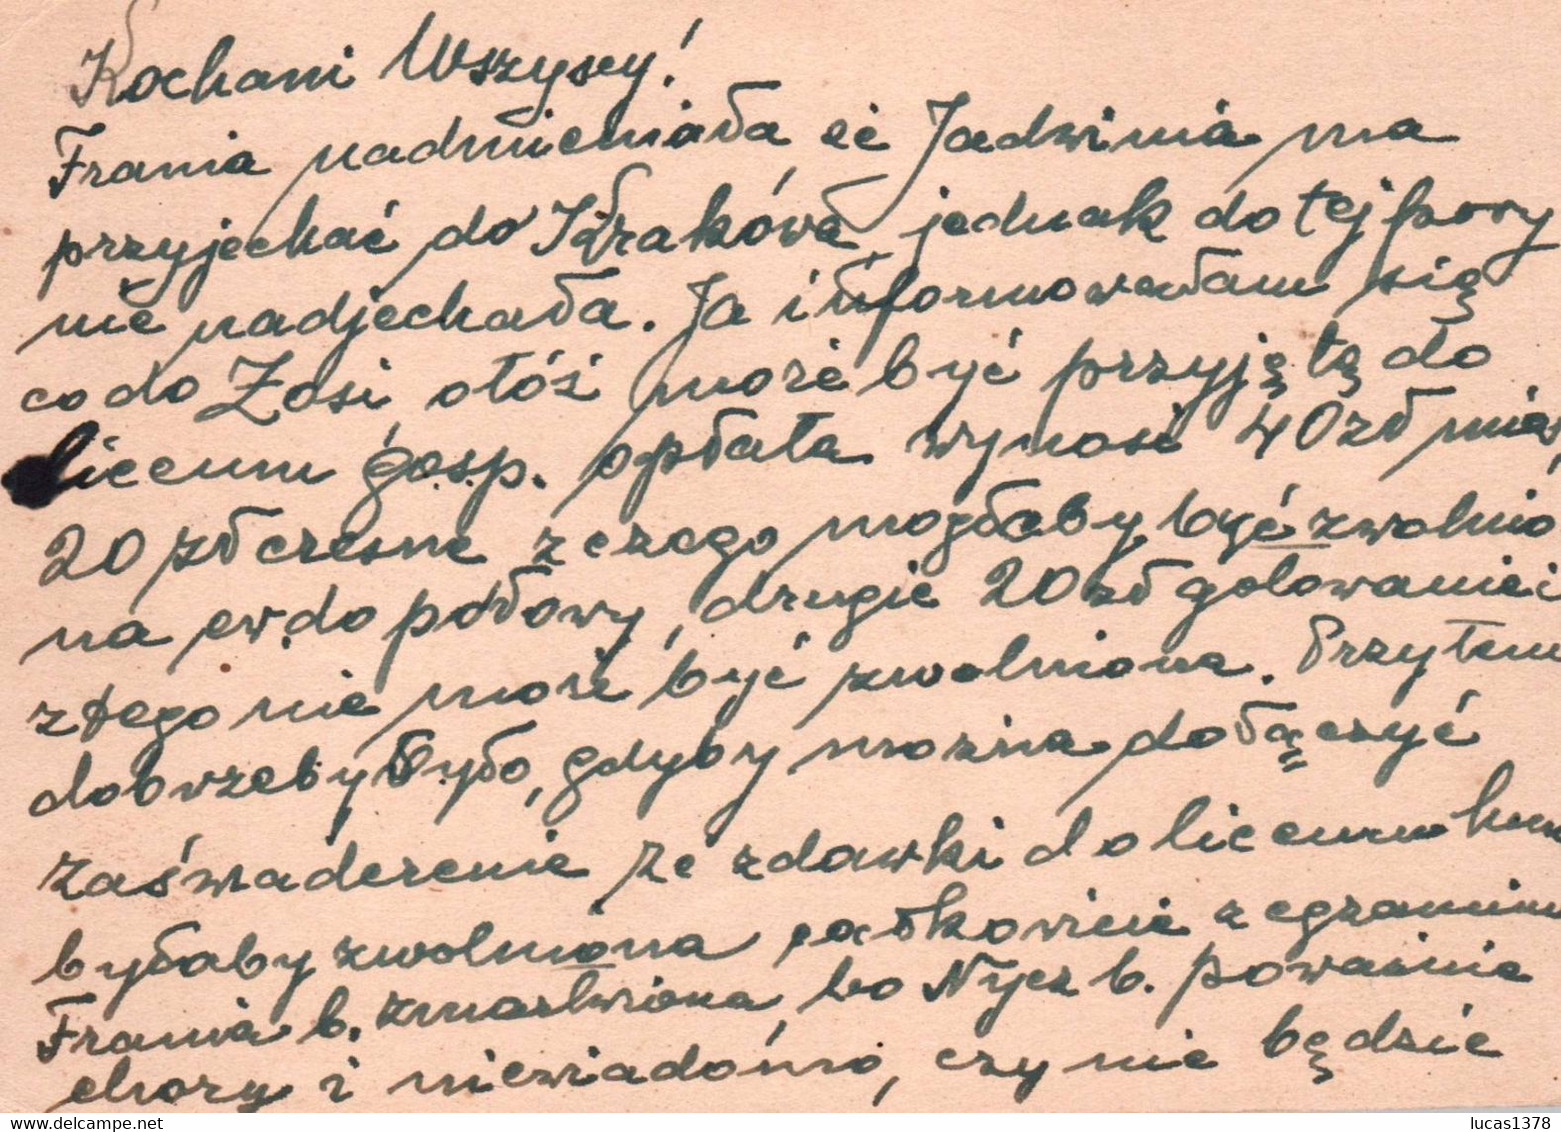 Kochani Wszyscy!
Frania nadmieniała że Jadwinia ma
przyjechać do Krakowa, jednak do tej pory
nie nadjechała. Ja informowałam się
co do Zosi, otóż może być przyjętą do
liceum gosp. opłata wynosi 40 zł mies,
20 zł czesne z czego mogłaby być zwolnio
na ew. do połowy, drugie 20 zł gotowanie i
z tego nie może być zwolniona. Przytem
dobrzeby było, gdyby można dołączyć
zaświadczenie że z dawki do liceum hum
byłaby zwolniona całkowicie z egzaminu
Frania b. zmartwiona, bo Nycz b. poważnie
chory i niewiadomo, czy nie będzie
lucas1378